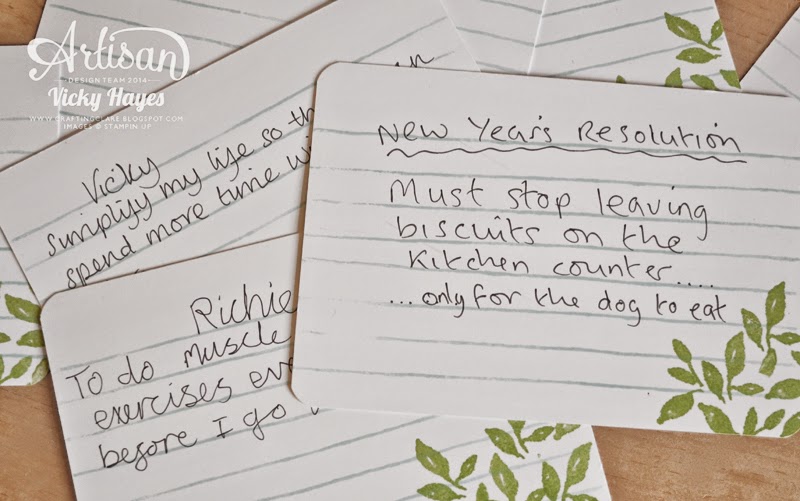 Artisan
DESIGN TEAM 2014
Vicky Hayes
WWW.CRAFTINGCLARE.BLOGSPOT.COM
IMAGES © STAMPIN UP
Vicky
Simplify my life so
spend more time
Richie
To do muscle
exercises
before I go
New Year's Resolution
Must stop leaving
biscuits on the
kitchen counter....
...only for the dog to eat